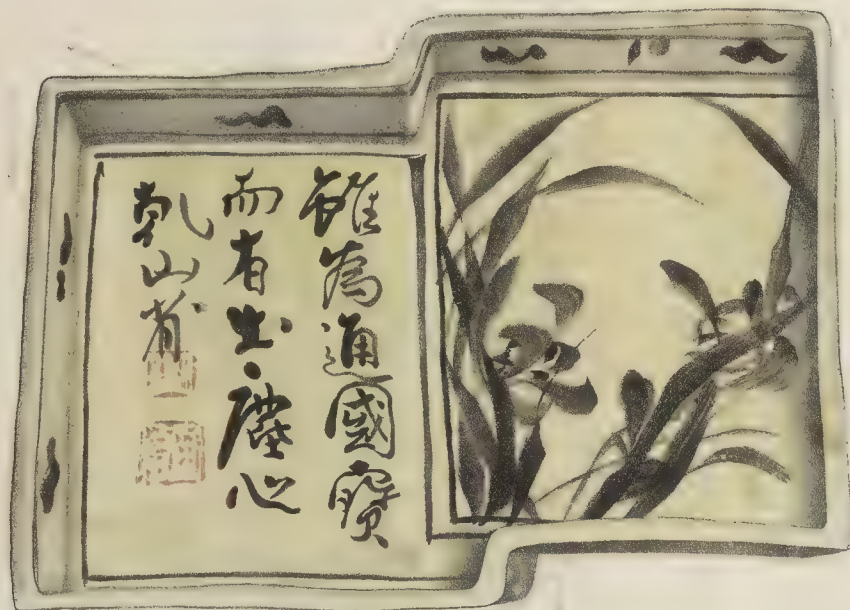 雖為通國寶
而有出塵心
乾山省